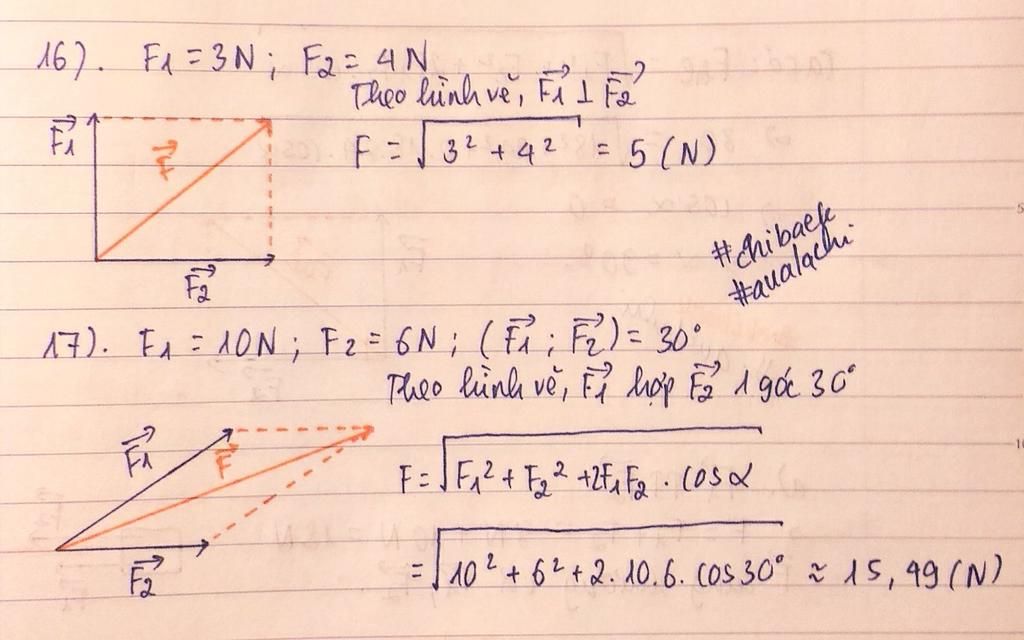 16). F1 = 3N ; F2 = 4N
Theo hình vẽ, F1→ ⊥ F2→
F1→
F→
F = √(3² + 4²) = 5 (N)
F2→
#chibaek
#aualachi
17). F1 = 10N ; F2 = 6N ; (F1→ ; F2→) = 30°
Theo hình vẽ, F1→ hợp F2→ 1 góc 30°
F1→
F→
F = √(F1² + F2² + 2F1F2 . cosα
F2→
= √(10² + 6² + 2.10.6. cos30° ≈ 15,49 (N)